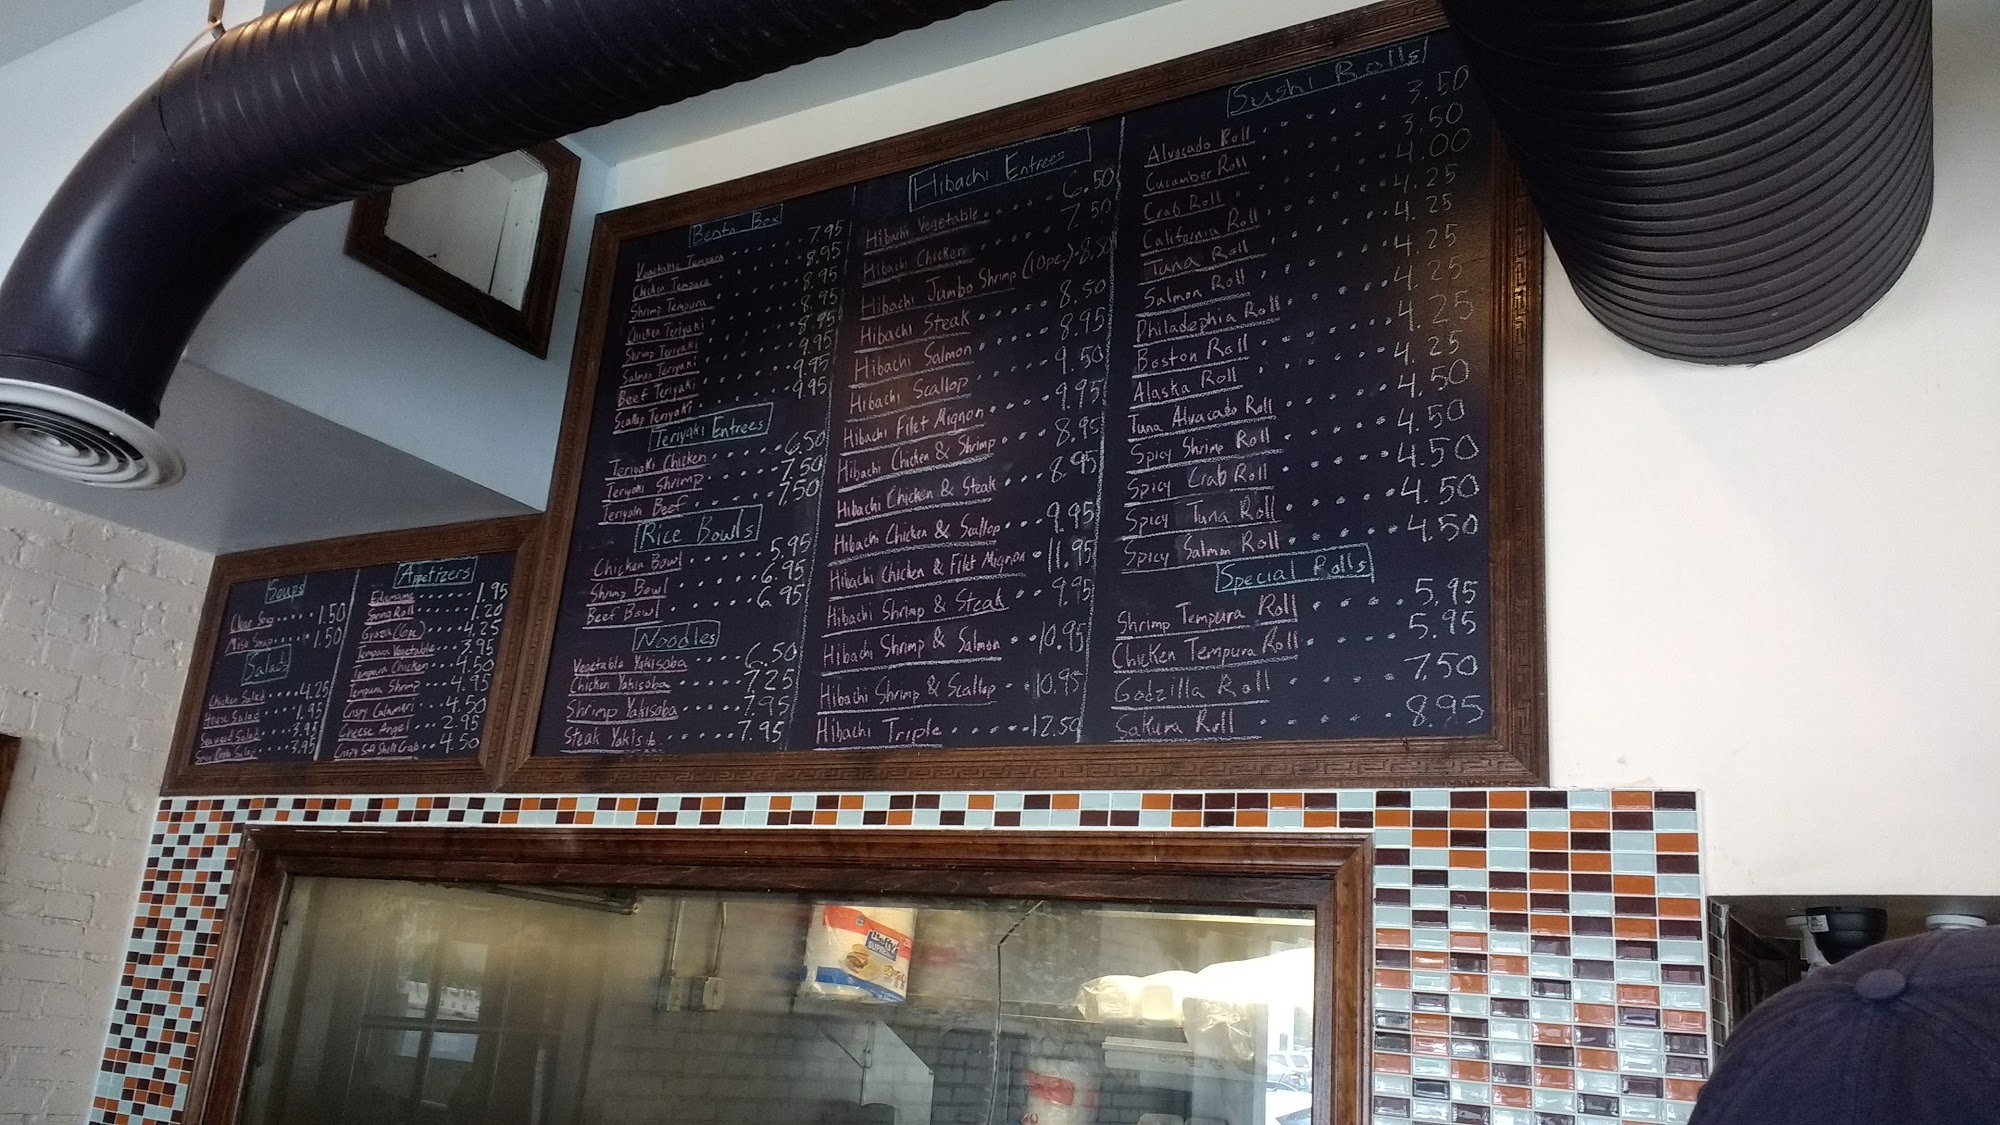 Soups
Clear Soup .... 1.50
Miso Soup .... 1.50
Salads
Chicken Salad .... 4.25
House Salad .... 1.95
Seaweed Salad .... 3.95
Spicy Crab Salad .... 3.95
Appetizers
Edamame ..... 1.95
Spring Roll ..... 1.20
Gyoza (6pc) .... 4.25
Tempura Vegetable .... 3.95
Tempura Chicken .... 4.50
Tempura Shrimp ... 4.95
Crispy Calamari .... 4.50
Cheese Angel ... 2.95
Crispy Soft Shell Crab .. 4.50
Bento Box
Vegetable Tempura ..... 7.95
Chicken Tempura ..... 8.95
Shrimp Tempura ..... 8.95
Chicken Teriyaki ..... 8.95
Shrimp Teriyaki ..... 8.95
Salmon Teriyaki ..... 9.95
Beef Teriyaki ..... 9.95
Scallop Teriyaki ..... 9.95
Teriyaki Entrees
Teriyaki Chicken ..... 6.50
Teriyaki Shrimp ..... 7.50
Teriyaki Beef ..... 7.50
Rice Bowls
Chicken Bowl ..... 5.95
Shrimp Bowl ..... 6.95
Beef Bowl ..... 6.95
Noodles
Vegetable Yakisoba ..... 6.50
Chicken Yakisoba .... 7.25
Shrimp Yakisoba .... 7.95
Steak Yakisob .... 7.95
Hibachi Entrees
Hibachi Vegetable ..... 6.50
Hibachi Chicken ..... 7.50
Hibachi Jumbo Shrimp (10pc.). 8.50
Hibachi Steak ..... 8.50
Hibachi Salmon ..... 8.95
Hibachi Scallop ..... 9.50
Hibachi Filet Mignon .... 9.95
Hibachi Chicken & Shrimp .... 8.95
Hibachi Chicken & Steak .... 8.95
Hibachi Chicken & Scallop ... 9.95
Hibachi Chicken & Filet Mignon . 11.95
Hibachi Shrimp & Steak ... 9.95
Hibachi Shrimp & Salmon .. 10.95
Hibachi Shrimp & Scallop .. 10.95
Hibachi Triple ..... 12.50
Sushi Rolls
Alvocado Roll ..... 3.50
Cucumber Roll ..... 3.50
Crab Roll ..... 4.00
California Roll ..... 4.25
Tuna Roll ..... 4.25
Salmon Roll ..... 4.25
Philadephia Roll ..... 4.25
Boston Roll ..... 4.25
Alaska Roll ..... 4.25
Tuna Alvacado Roll ..... 4.50
Spicy Shrimp Roll ..... 4.50
Spicy Crab Roll ..... 4.50
Spicy Tuna Roll ..... 4.50
Spicy Salmon Roll ..... 4.50
Special Rolls
Shrimp Tempura Roll .... 5.95
Chicken Tempura Roll .... 5.95
Godzilla Roll ..... 7.50
Sakura Roll ..... 8.95
Hefty
SUPREME